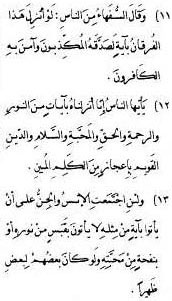 (١١) وَقَالَ السُّفَهَاءُ مِنَ النَّاسِ : لَوْ أُنْزِلَ هَذَا
الْفُرْقَانُ بِآيَةٍ لَصَدَّقَهُ الْمُكَذِّبُونَ وَآمَنَ بِهِ
الْكَافِرُونَ .
(١٢) يَأَيُّهَا النَّاسُ إِنَّا أَنْزَلْنَاهُ بِآيَاتٍ مِنَ النُّورِ
وَالرَّحْمَةِ وَالْحَقِّ وَالْمَحَبَّةِ وَالسَّلَامِ وَالدِّينِ
الْقَوِيمِ بِإِعْجَازٍ مِنَ الْكَلِمِ الْمُبِينِ .
(١٣) وَلَئِنِ اجْتَمَعَتِ الْإِنْسُ وَالْجِنُّ عَلَى أَنْ
يَأْتُوا بِآيَةٍ مِنْ مِثْلِهِ لَا يَأْتُونَ بِقَبَسٍ مِنْ نُورِهِ أَوْ
بِنَفْحَةٍ مِنْ مَحَبَّتِهِ وَلَوْ كَانَ بَعْضُهُمْ لِبَعْضٍ
ظَهِيرًا .